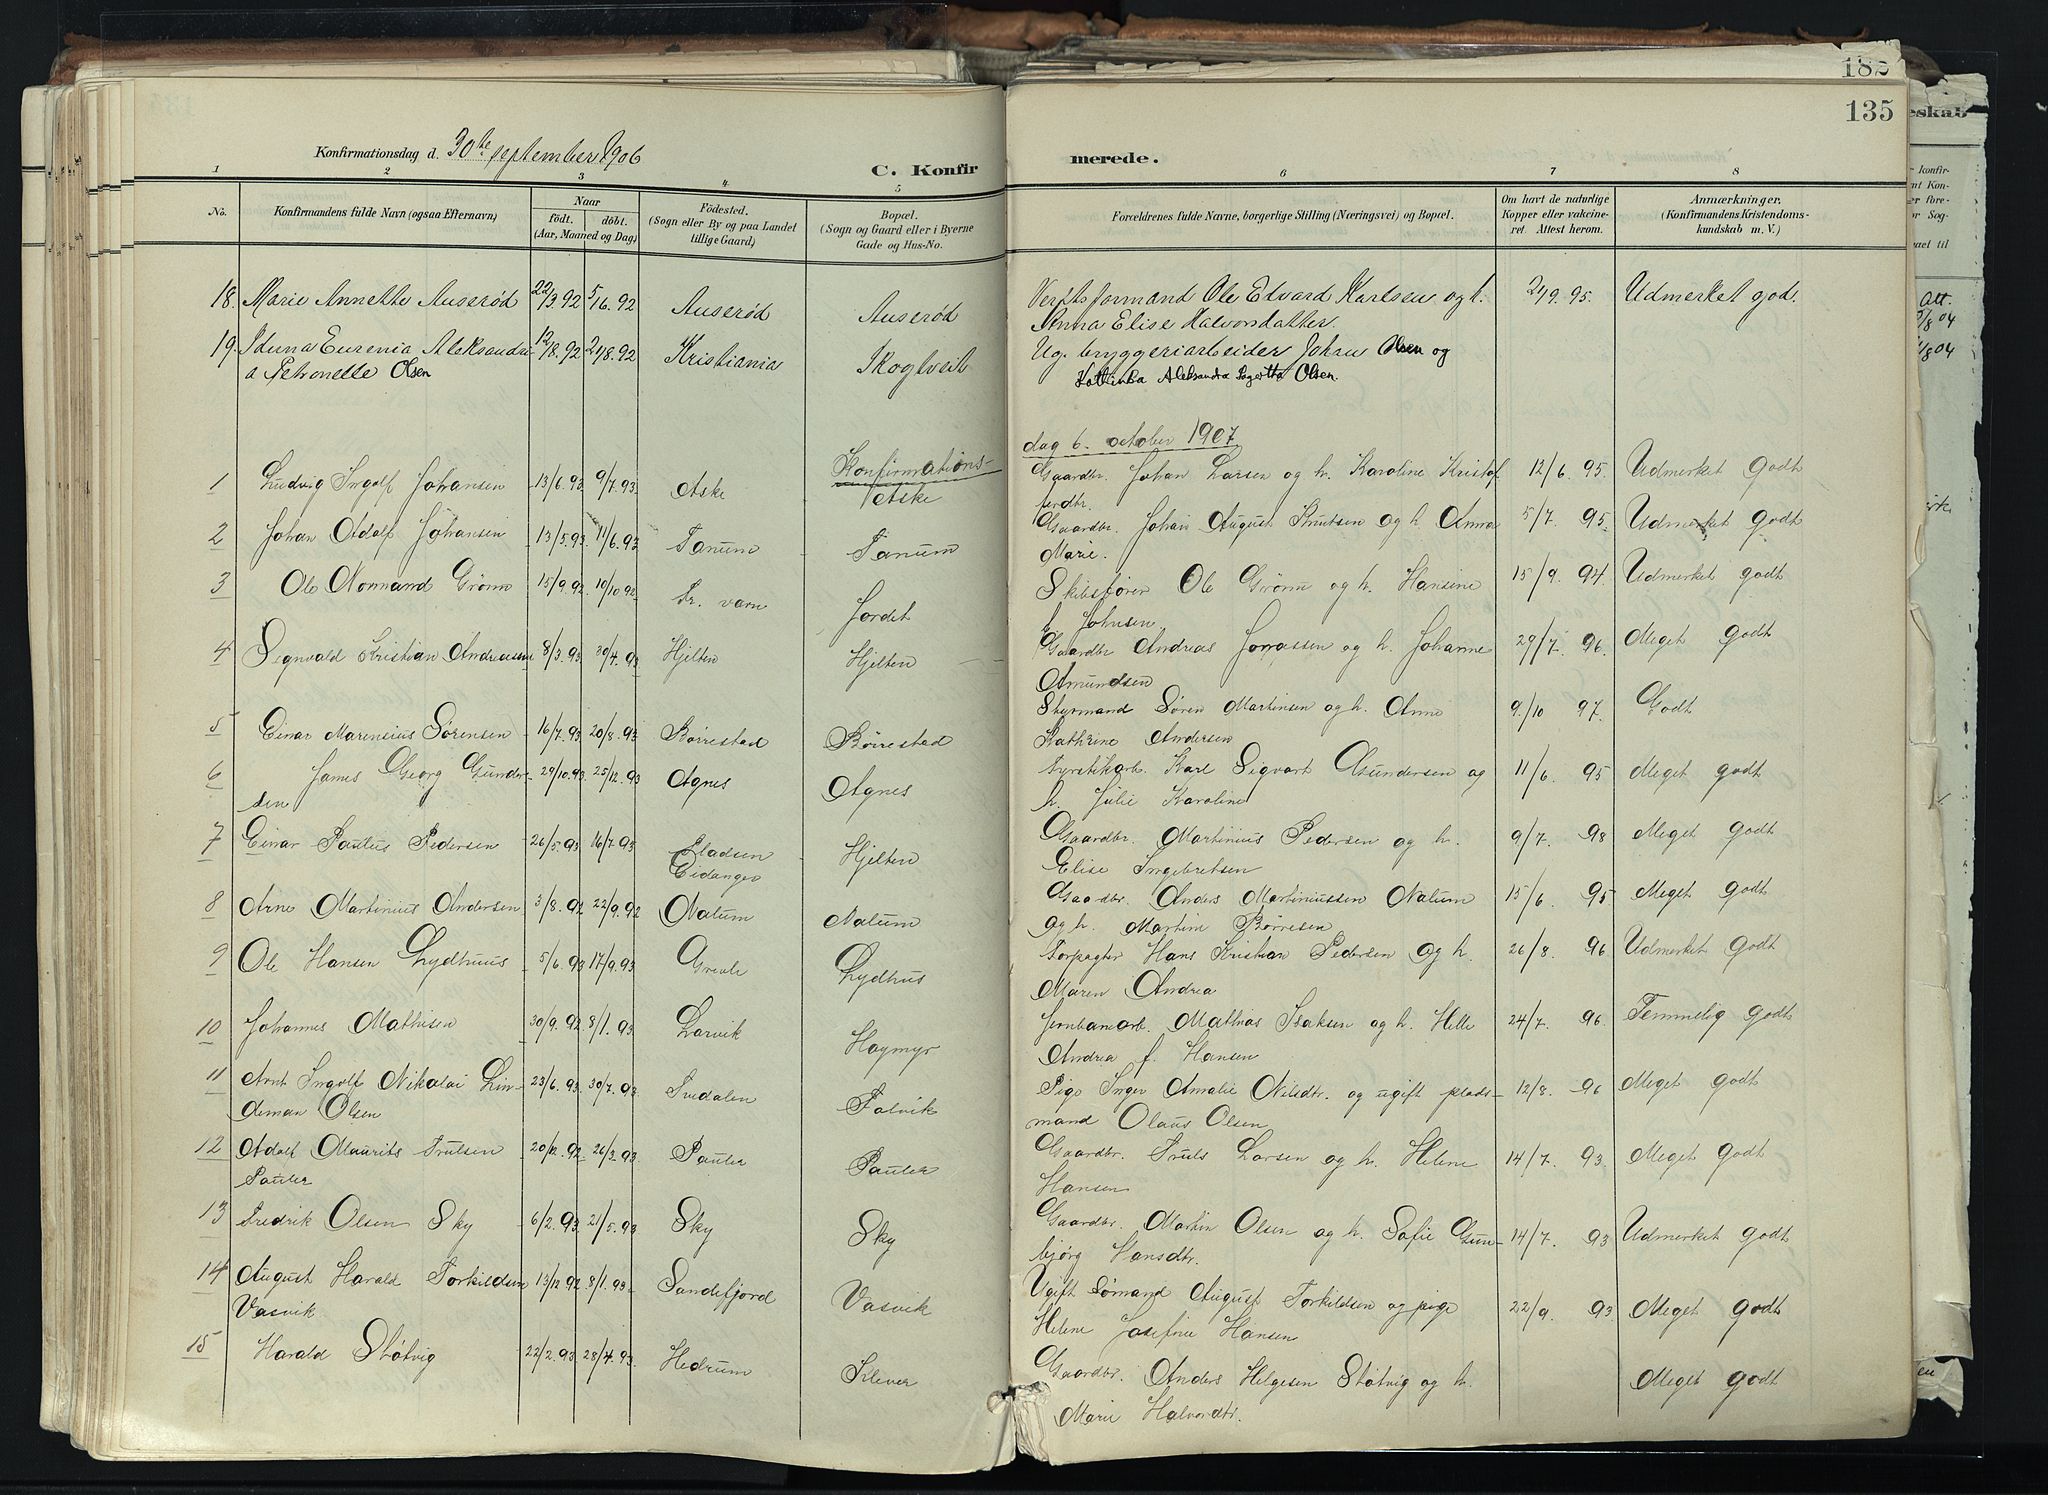 182
135
Konfirmationsdag d. 30te september 1906
C. Konfirmerede.
1 2 3 4 5 6 7 8
No. Konfirmandens fulde Navn (ogsaa Efternavn) Naar födt. döbt. (Aar, Maaned og Dag) Födested. (Sogn eller By og paa Landet tillige Gaard) Bopæl. (Sogn og Gaard eller i Byerne Gade og Hus-No. Forældrenes fulde Navne, borgerlige Stilling (Næringsvei) og Bopæl. Om havt de naturlige Kopper eller vakcineret. Attest herom. Anmærkninger. (Konfirmandens Kristendomskundskab m. V.)
18. Marie Annette Auserød 22/3.92 Auserød Auserød Ole Edvard Karlsen og h. Udmerket god.
Anna Elise Halvorsdatter.
19. Aleksandri- 12/8.92 Kristiania Skogtveit Ug. bryggeriarbeider Johan Olsen og
a Petronelle Olsen Aleksandra Olsen.
Konfirmations- dag 6. october 1907
1 Ludvig Ingolf Johansen 13/6.93 9/7.93 Aske Aske Gaardbr. Johan Larsen og h. Karoline Kristof 12/6.95. Udmerket godt
ferdtr.
2 Johan Adolf Johansen 13/5.93 11/6.93 Tanum Tanum Gaardbr. Johan August Knutsen og h. Anna 5/7.95. Udmerket godt
Marie.
3 Ole Normand Grønn 15/9.92 10/10.92 Fr. værn Jordet Skibsfører Ole Grønn og h. Hansine 15/9.94. Udmerket godt
f. Johnsen
4 Segnvald Kristian Andreassen 8/3.93 30/4.93 Hjelten Hjelten Gaardbr Andreas Jonassen og h. Johanne 29/7.96. Meget godt
Amundsen
5 Einar Marensius Sørensen 16/7.93 20/8.93 Børrestad Børrestad Styrmand Søren Martinsen og h. Anne 9/10 97. Godt
Kathrine Andersen
6 James Georg Gunder- 29/10.93. 25/12.93 Agnes Agnes Fyrstikarb. Karl Sigvart Gundersen og 11/6.95 Meget godt
sen h. Julie Karoline
7 Einar Paulus Pedersen 26/5.93 16/7.93 Eidanger Hjelten Gaardbr. Martinius Pedersen og h. 9/7.98 Meget godt
Elise Ingebretsen
8 Arne Martinius Andersen 3/8.92 22/9.92 Nalum Nalum Gaardbr. Anders Martiniussen Nalum 15/6.95 Meget godt
og h. Martine Børresen
9 Ole Hansen Lydhuus 5/6.93 17/9.93 Lydhus Forpagter Hans Kristian Pedersen og h. 26/8.96 Udmerket godt
Maren Andrea
10 Johannes Mathisen 30/9.92 8/1.93 Larvik Haymyr Jernbanarb. Mathias Isaksen og h. Helle 24/7.96. Temmelig godt
Andrea f. Hansen
11 Arnt Ingolf Nikolai Lin- 23/6.93 30/7.93 Tredalen Falvik Pige Inger Amalie Nilsdtr. og ugift plads- 12/8.96 Meget godt
deman Olsen mand Olaus Olsen
12 Adolf Maurits Trulsen 20/12.92 26/3.93 Pauler Pauler Gaardbr. Truls Larsen og h. Helene 14/7.93. Meget godt
Pauler Hansen
13 Fredrik Olsen Sky 6/2.93 21/5.93 Sky Sky Gaardbr. Martin Olsen og h. Sofie Gun- 14/7.93 Udmerket godt
bjørg Hansdtr.
14 August Harald Torkildsen 13/12.92 8/1.93 Sandefjord Vasvik Ugift Sømand August Torkildsen og pige 22/9.93 Meget godt
Vasvik Helene Josefine Hansen
15 Harald Støtvig 22/2.93 28/4.93 Hedrum Klever Gaardbr. Anders Helgesen Støtvig og h. Meget godt
Marie Halvordtr.